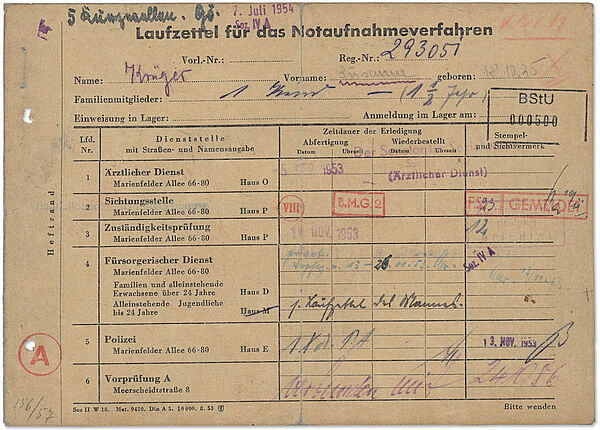 5 Kurzwellen. Gö.
7. Juli 1954
Soz. IV A
Laufzettel für das Notaufnahmeverfahren
Vorl.-Nr.: Reg.-Nr.: 293051
Name: Krüger Vorname: geboren: 10.25
Familienmitglieder: 1 Kind – (1 1/2 Jhr)
Einweisung in Lager: Anmeldung im Lager am:
BStU
000500
Lfd. Nr.
Dienststelle
mit Straßen- und Namensangabe
Zeitdauer der Erledigung
Abfertigung Wiederbestellt
Datum Uhrzeit Datum Uhrzeit
Stempel-
und Sichtvermerk
Heftrand
1 Ärztlicher Dienst
Marienfelder Allee 66-80 Haus O
1953
(Ärztlicher Dienst)
2 Sichtungsstelle
Marienfelder Allee 66-80 Haus P
VIII B.M.G.2 23 GEMELDET
3 Zuständigkeitsprüfung
Marienfelder Allee 66-80 Haus P
NOV. 1953
12
4 Fürsorgerischer Dienst
Marienfelder Allee 66-80
Soz. IV A
Familien und alleinstehende
Erwachsene über 24 Jahre Haus D
Alleinstehende Jugendliche
bis 24 Jahre Haus M
s. Laufzettel des Mannes.
5 Polizei
Marienfelder Allee 66-80 Haus E
13. NOV. 1953
6 Vorprüfung A
Meerscheidtstraße 8
verbunden mit 24056
A
156/57
Soz II W 10. Mat. 9420. Din A 5. 10 000. 8. 53
Bitte wenden